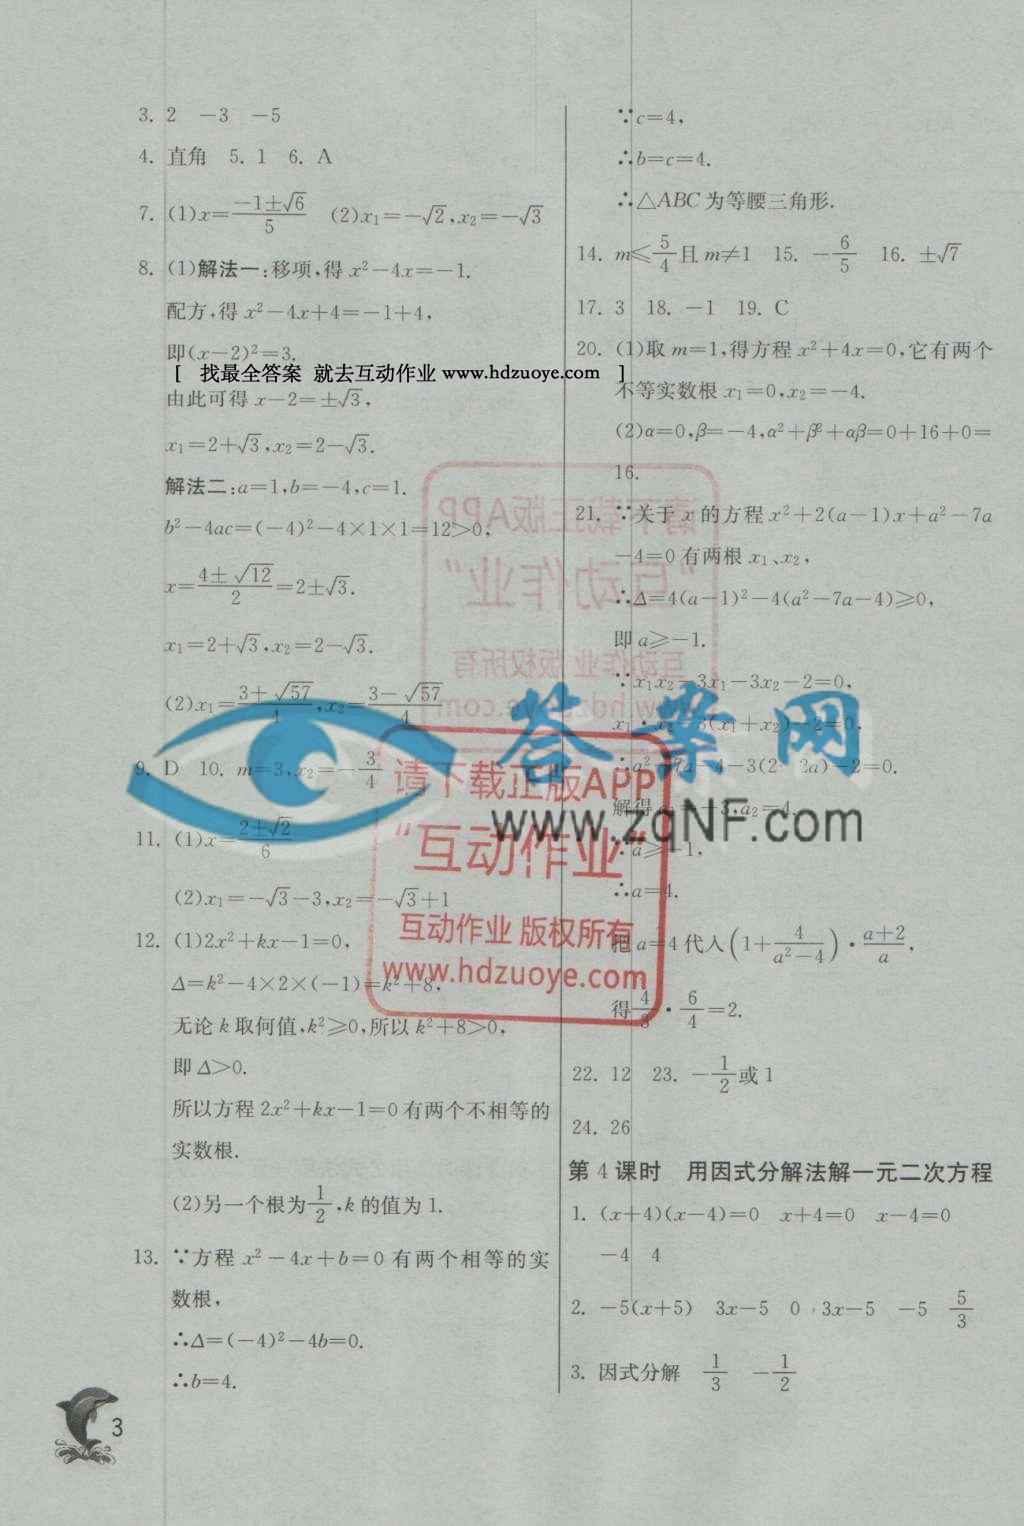 3. 2　－3　－5
4. 直角　5. 1　6. A
7. (1)x=(-1±√6)/5　(2)x₁=-√2,x₂=-√3
8. (1)解法一:移项,得 x²-4x=-1.
配方,得 x²-4x+4=-1+4,
即(x-2)²=3.
[　找最全答案　就去互动作业 www.hdzuoye.com　]
由此可得 x-2=±√3,
x₁=2+√3,x₂=2-√3.
解法二:a=1,b=-4,c=1.
b²-4ac=(-4)²-4×1×1=12>0,
x=(4±√12)/2=2±√3.
x₁=2+√3,x₂=2-√3.
(2)x₁=(3+√57)/4,x₂=(3-√57)/4
9. D　10. m=3,x₂=-3/4
11. (1)x=(2±√2)/6
(2)x₁=-√3-3,x₂=-√3+1
12. (1)2x²+kx-1=0,
Δ=k²-4×2×(-1)=k²+8,
无论 k 取何值,k²≥0,所以 k²+8>0,
即 Δ>0.
所以方程 2x²+kx-1=0 有两个不相等的
实数根.
(2)另一个根为1/2,k 的值为 1.
13. ∵方程 x²-4x+b=0 有两个相等的实
数根,
∴Δ=(-4)²-4b=0.
∴b=4.
3
∵c=4,
∴b=c=4.
∴△ABC 为等腰三角形.
14. m≤5/4且 m≠1　15. -6/5　16. ±√7
17. 3　18. -1　19. C
20. (1)取 m=1,得方程 x²+4x=0,它有两个
不等实数根 x₁=0,x₂=-4.
(2)α=0,β=-4,α²+β²+αβ=0+16+0=
16.
21. ∵关于 x 的方程 x²+2(a-1)x+a²-7a
-4=0 有两根 x₁、x₂,
∴Δ=4(a-1)²-4(a²-7a-4)≥0,
即 a≥-1.
∵x₁x₂-3x₁-3x₂-2=0,
x₁·x₂-3(x₁+x₂)-2=0.
∵a²-7a-4-3(2-2a)-2=0.
解得 a₁=-3,a₂=4.
∵a≥-1,
∴a=4.
把 a=4 代入(1+4/(a²-4))·(a+2)/a,
得4/3·6/4=2.
22. 12　23. -1/2或 1
24. 26
第 4 课时　用因式分解法解一元二次方程
1. (x+4)(x-4)=0　x+4=0　x-4=0
-4　4
2. -5(x+5)　3x-5　0　3x-5　-5　5/3
3. 因式分解　1/3　-1/2
请下载正版APP
"互动作业"
互动作业 版权所有
www.hdzuoye.com
请下载正版APP
"互动作业"
互动作业 版权所有
www.hdzuoye.com
答案网
www.zqNF.com